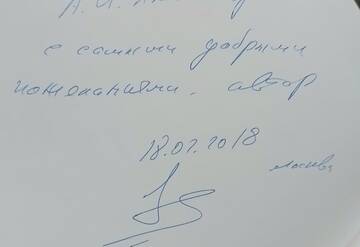 А. И.
с самыми добрыми
пожеланиями. автор
18.02.2018
Москва